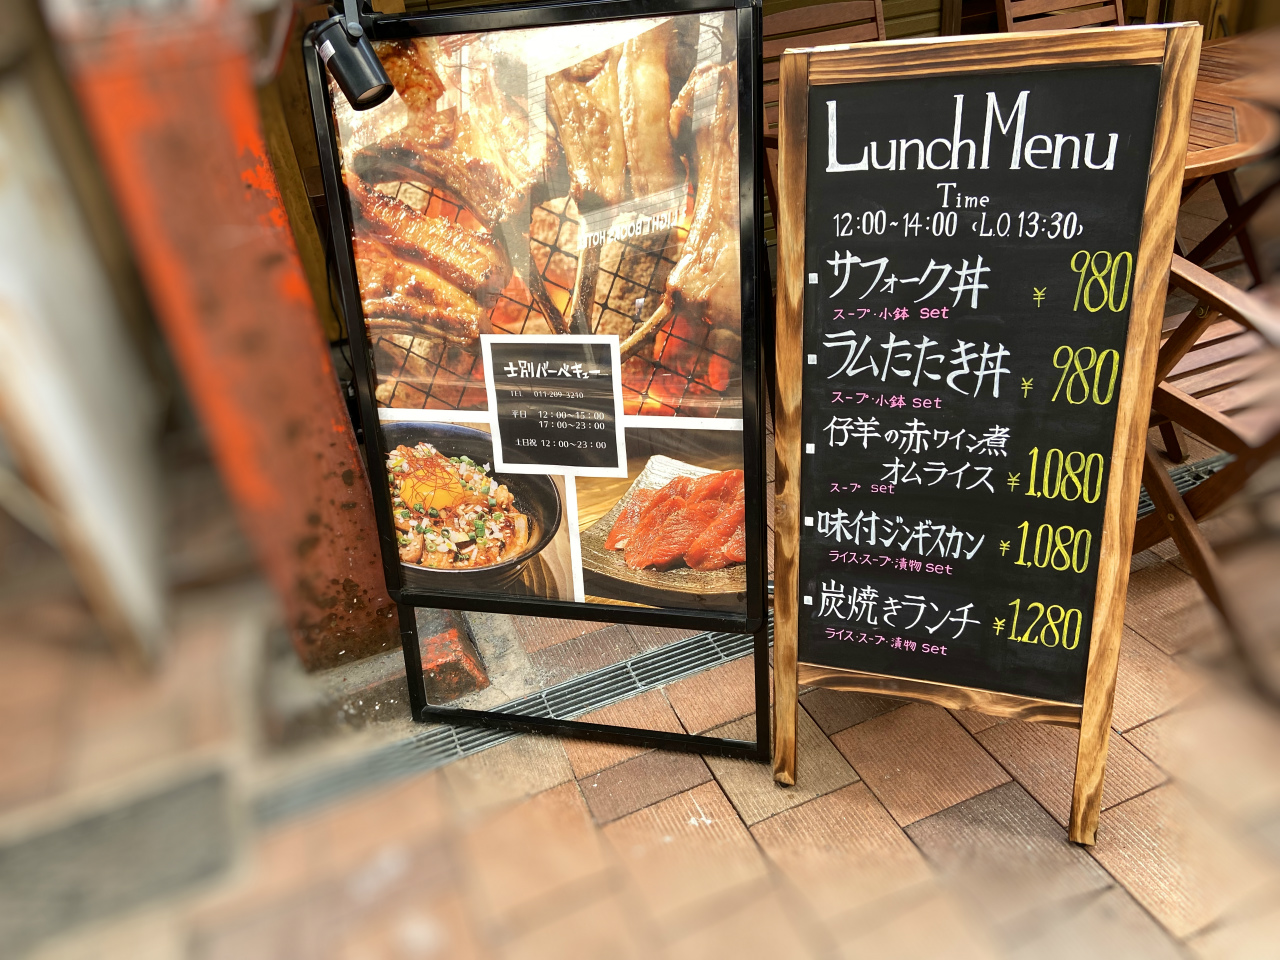 士別バーベキュー
TEL 011-209-3210
平日 12：00～15：00
17：00～23：00
土日祝 12：00～23：00
Lunch Menu
Time
12:00~14:00 (L.O. 13:30)
サフォーク丼 ¥980
スープ・小鉢 set
ラムたたき丼 ¥980
スープ・小鉢 set
仔羊の赤ワイン煮
オムライス ¥1,080
スープ set
味付ジンギスカン ¥1,080
ライス・スープ・漬物 set
炭焼きランチ ¥1,280
ライス・スープ・漬物 set